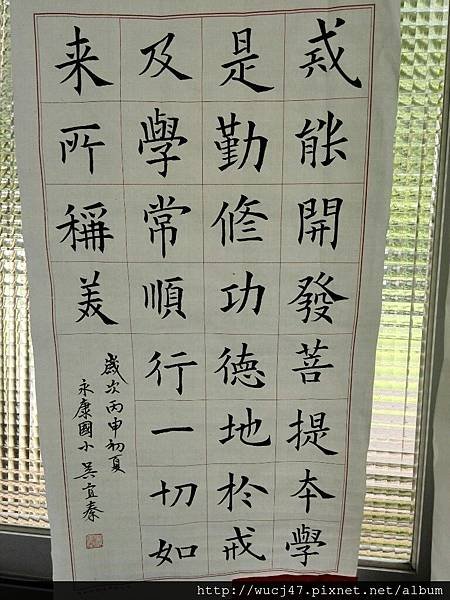 戒能開發菩提本學
是勤修功德地於戒
及學常順行一切如
来所稱美
歲次丙申初夏
永康國小吳宜秦
http://wucj47.pixnet.net/album